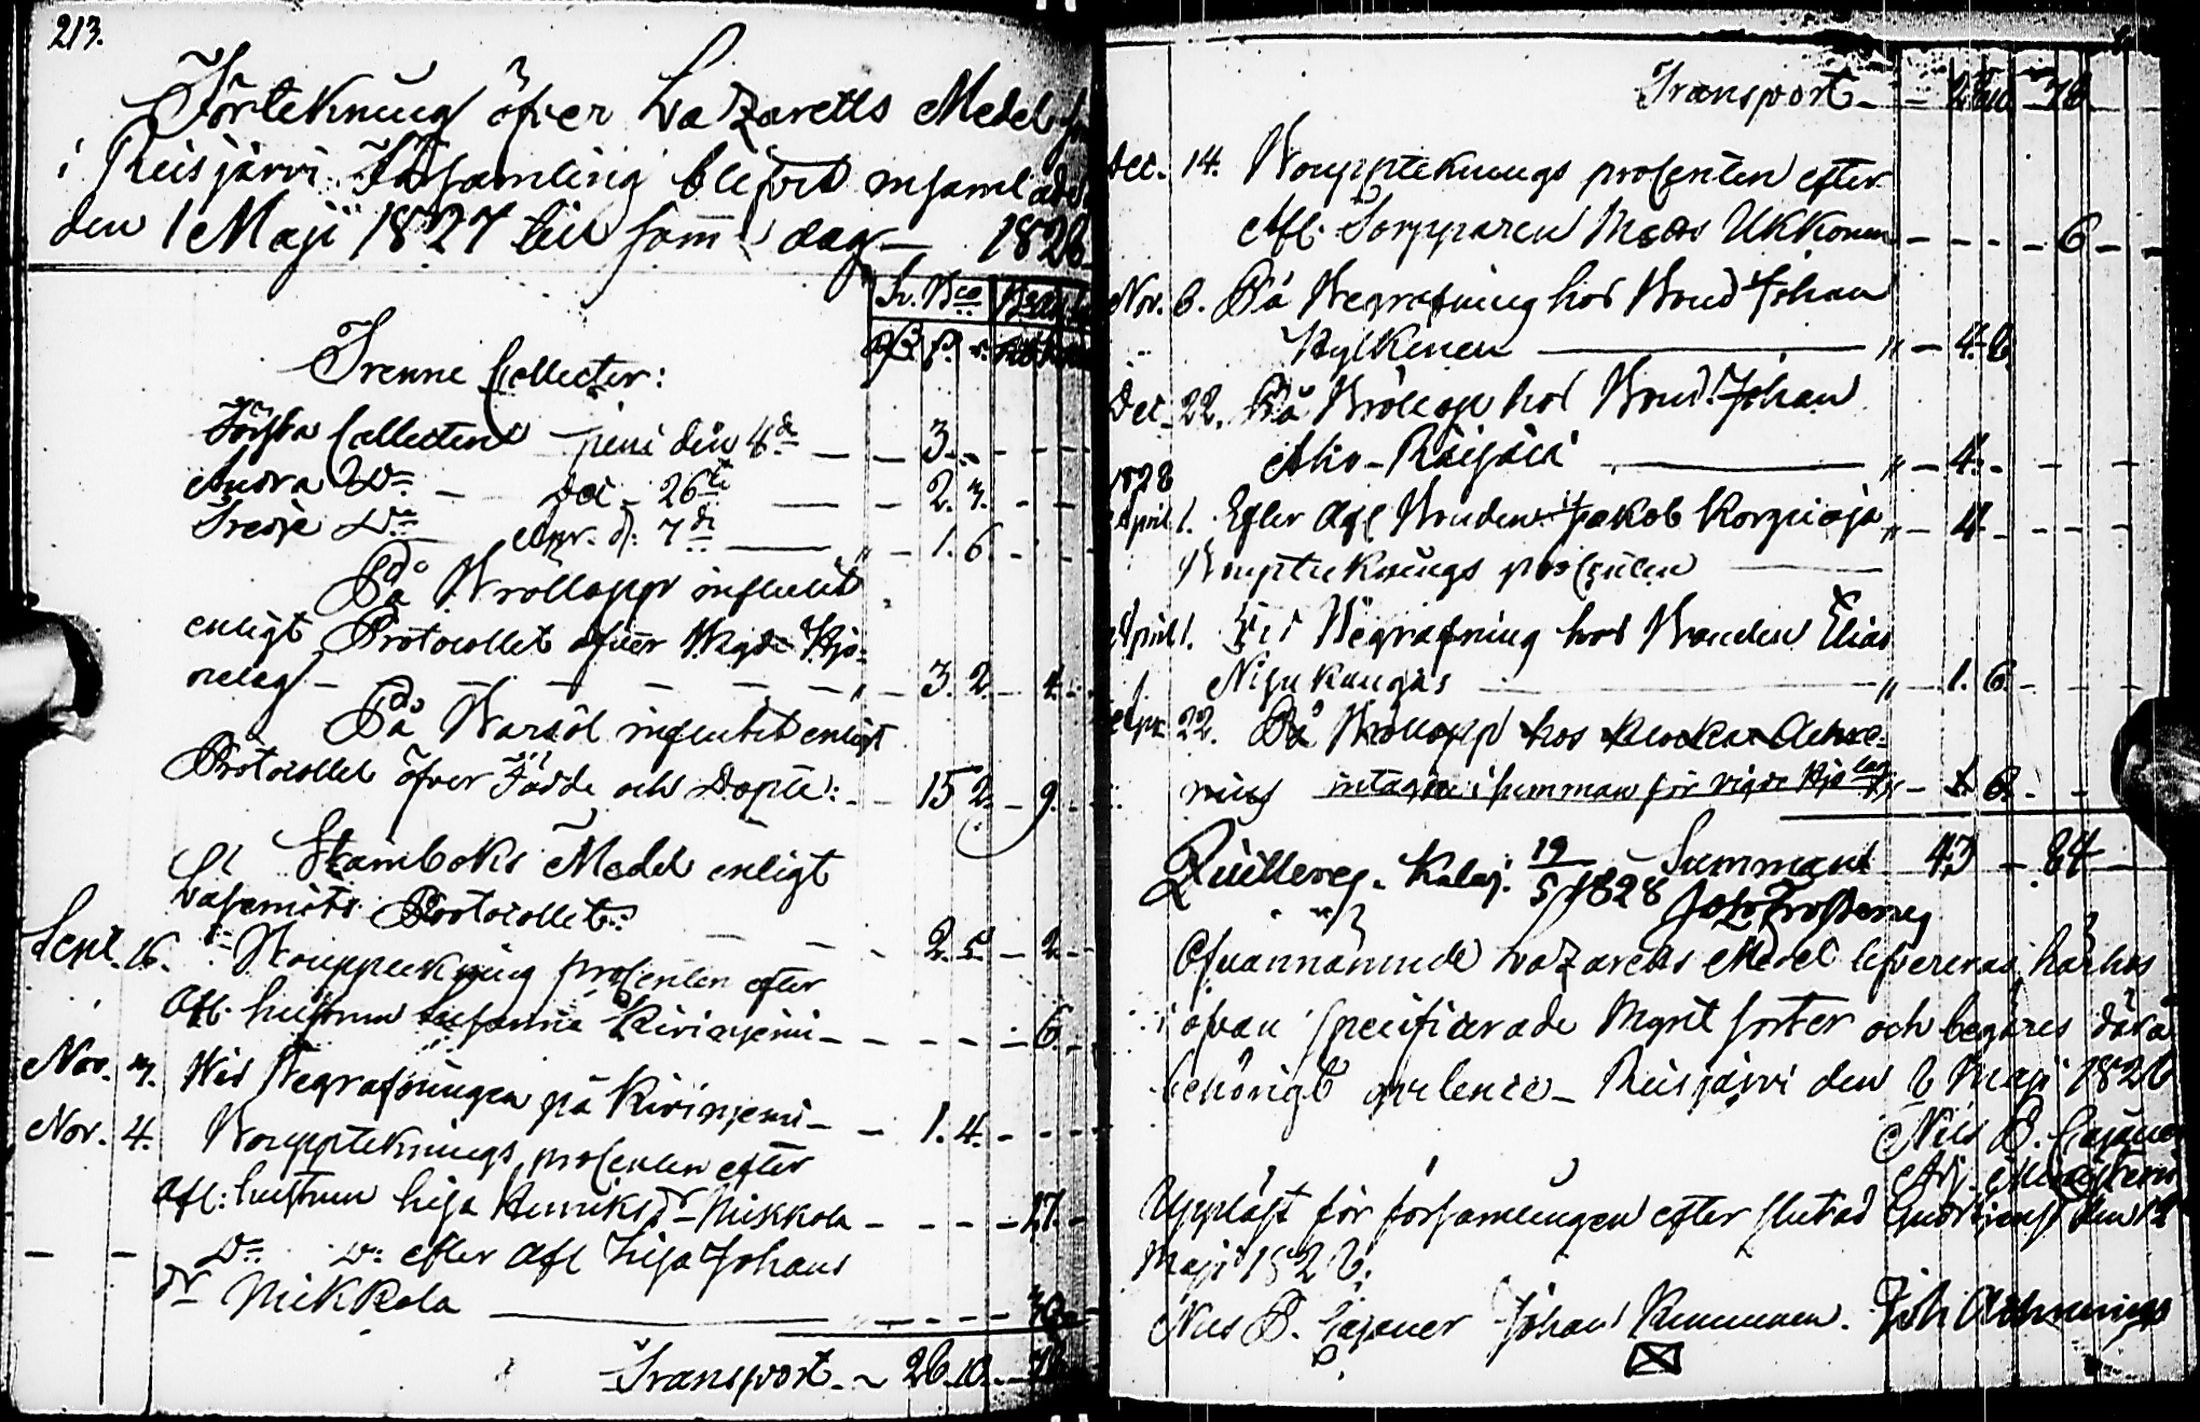 213.
Förtekning öfver Lazaretts Medel
i Reisjärvi Församling blifvit insamlade
den 1 Maji 1827 till samma dag 1828
Sv. Bco
Rß. s. r.
Trenne Collecter:
Första Collecten Junii den 4de — — 3. - -
Andra Do — Dec. 26te — — 2. 3. - -
Tredje Do Apr. d. 7de — „ — 1. 6. - -
På Bröllopp influtit
enligt Protocollet öfver Wigde Hjo-
nelag — — — — — „ — 3. 2. — 4. -
På Barsöl influtit enligt
Protocollet öfver Födde och Döpte: - - 15 2. — 9. -
Stamboks Medel enligt
Läsemöts Protocollet: — — - 2. 5. — 2. -
Sept. 16. Bouppteckning procenten efter
Afl. hustrun Susanna Kiriniemi — — — — 6. -
Nov. 3. Wid Begrafningen på Kiriniemi — — 1. 4. - -
Nov. 4. Bouppteknings procenten efter
Afl: hustrun Lisa Henriksdr Mikkola — — — 27. -
— — Do Do efter Afl Lisa Johans
dr Mikkola — — — — 30
Transport. ~ 26. 10. — 78
Transport — — 26 10 — 78
Dec. 14. Bouppteknings procenten efter
Afl. Torpparen Mats Ukkonen — — — 6 —
Nov. 6. På Begrafning hos Bond Johan
Hylkinen — „ — 4. 8.
Dec. 22. På Bröllop hos Bond. Johan
Aho-Räisälä — „ — 4. - — —
1828
April 1. Efter Afl Bonden Jakob Korpioja „ — 4. - — —
Boupteknings procenten —
April 1. Vid Begrafning hos Bonden Elias
Nisukangas — „ — 1. 6. — —
Apr. 22. På Bröllopp hos Klockar Achre-
nius intagne i summan för vigde Hjo lag — 1. 6. - -
Qvitteras. Kalaj. 19/5 1828 Summa 43 — 84 —
Joh Frosterus
Ofvannämnde Lazaretts Medel lefvereras härhos
i ofvan specificerade Mynt sorter och begäres därå
behörigt qvittence — Reisjärvi den 8 Maji 1828
Nils B. Cajaner
Adj. Ministerii
Uppläst för församlingen efter slutad Gudstjenst den 12
Maji 1828:
Nils B. Cajaner Johan Kinnunen. Joh Achrenius